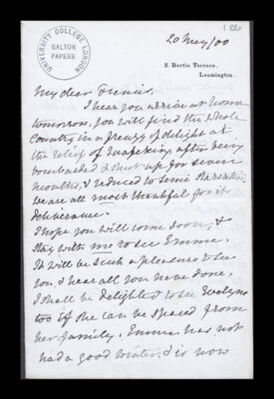 UNIVERSITY COLLEGE LONDON
GALTON PAPERS
20 May/00
5. Bertie Terrace,
Leamington.
My dear Francis,
I hear you arrive at home
tomorrow, you will find the whole
Country in a frenzy of delight at
the relief of Mafeking, after being
bombarded & shut up for seven
months, & reduced to semi starvation
we are all most thankful for its
deliverance.
I hope you will come soon, &
stay with me to see Emma.
It will be such a pleasure to see
you, & hear all you have done.
I shall be delighted to see Evelyne
too if she can be spared from
her family. Emma has not
had a good winter, & is now